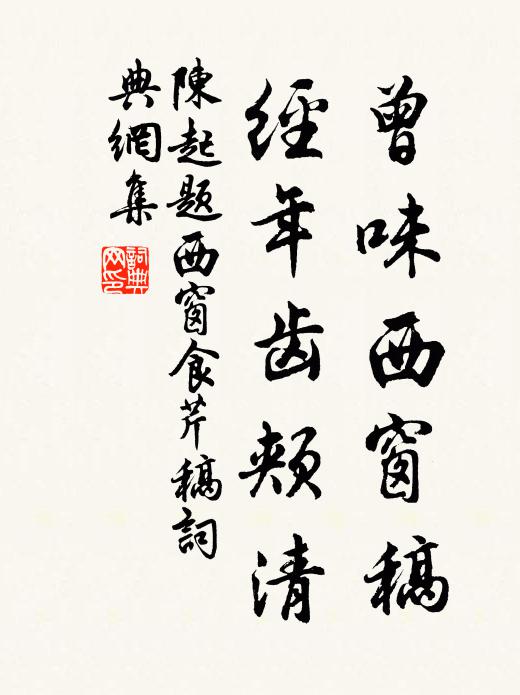 曾味西窗稿
經年齿頰清
陳起题西窗食芹稿詞
典網集
詞典網印